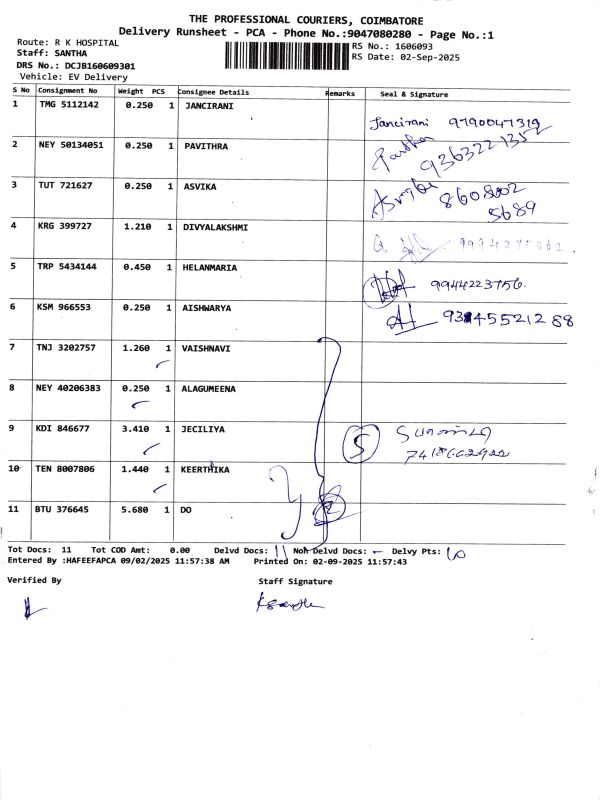 THE PROFESSIONAL COURIERS, COIMBATORE
Delivery Runsheet - PCA - Phone No.:9047080280 - Page No.:1
Route: R K HOSPITAL
Staff: SANTHA
DRS No.: DCJB160609301
Vehicle: EV Delivery
RS No.: 1606093
RS Date: 02-Sep-2025
S No Consignment No Weight PCS Consignee Details Remarks Seal & Signature
1 TMG 5112142 0.250 1 JANCIRANI Jancirani 9790047319
2 NEY 50134051 0.250 1 PAVITHRA
3 TUT 721627 0.250 1 ASVIKA 8608002
5689
4 KRG 399727 1.210 1 DIVYALAKSHMI
5 TRP 5434144 0.450 1 HELANMARIA 9944223756.
6 KSM 966553 0.250 1 AISHWARYA
7 TNJ 3202757 1.260 1 VAISHNAVI
8 NEY 40206383 0.250 1 ALAGUMEENA
9 KDI 846677 3.410 1 JECILIYA S
10 TEN 8007806 1.440 1 KEERTHIKA
11 BTU 376645 5.680 1 DO
Tot Docs: 11 Tot COD Amt: 0.00 Delvd Docs: 11 Non Delvd Docs: - Delvy Pts:
Entered By :HAFEEFAPCA 09/02/2025 11:57:38 AM Printed On: 02-09-2025 11:57:43
Verified By Staff Signature